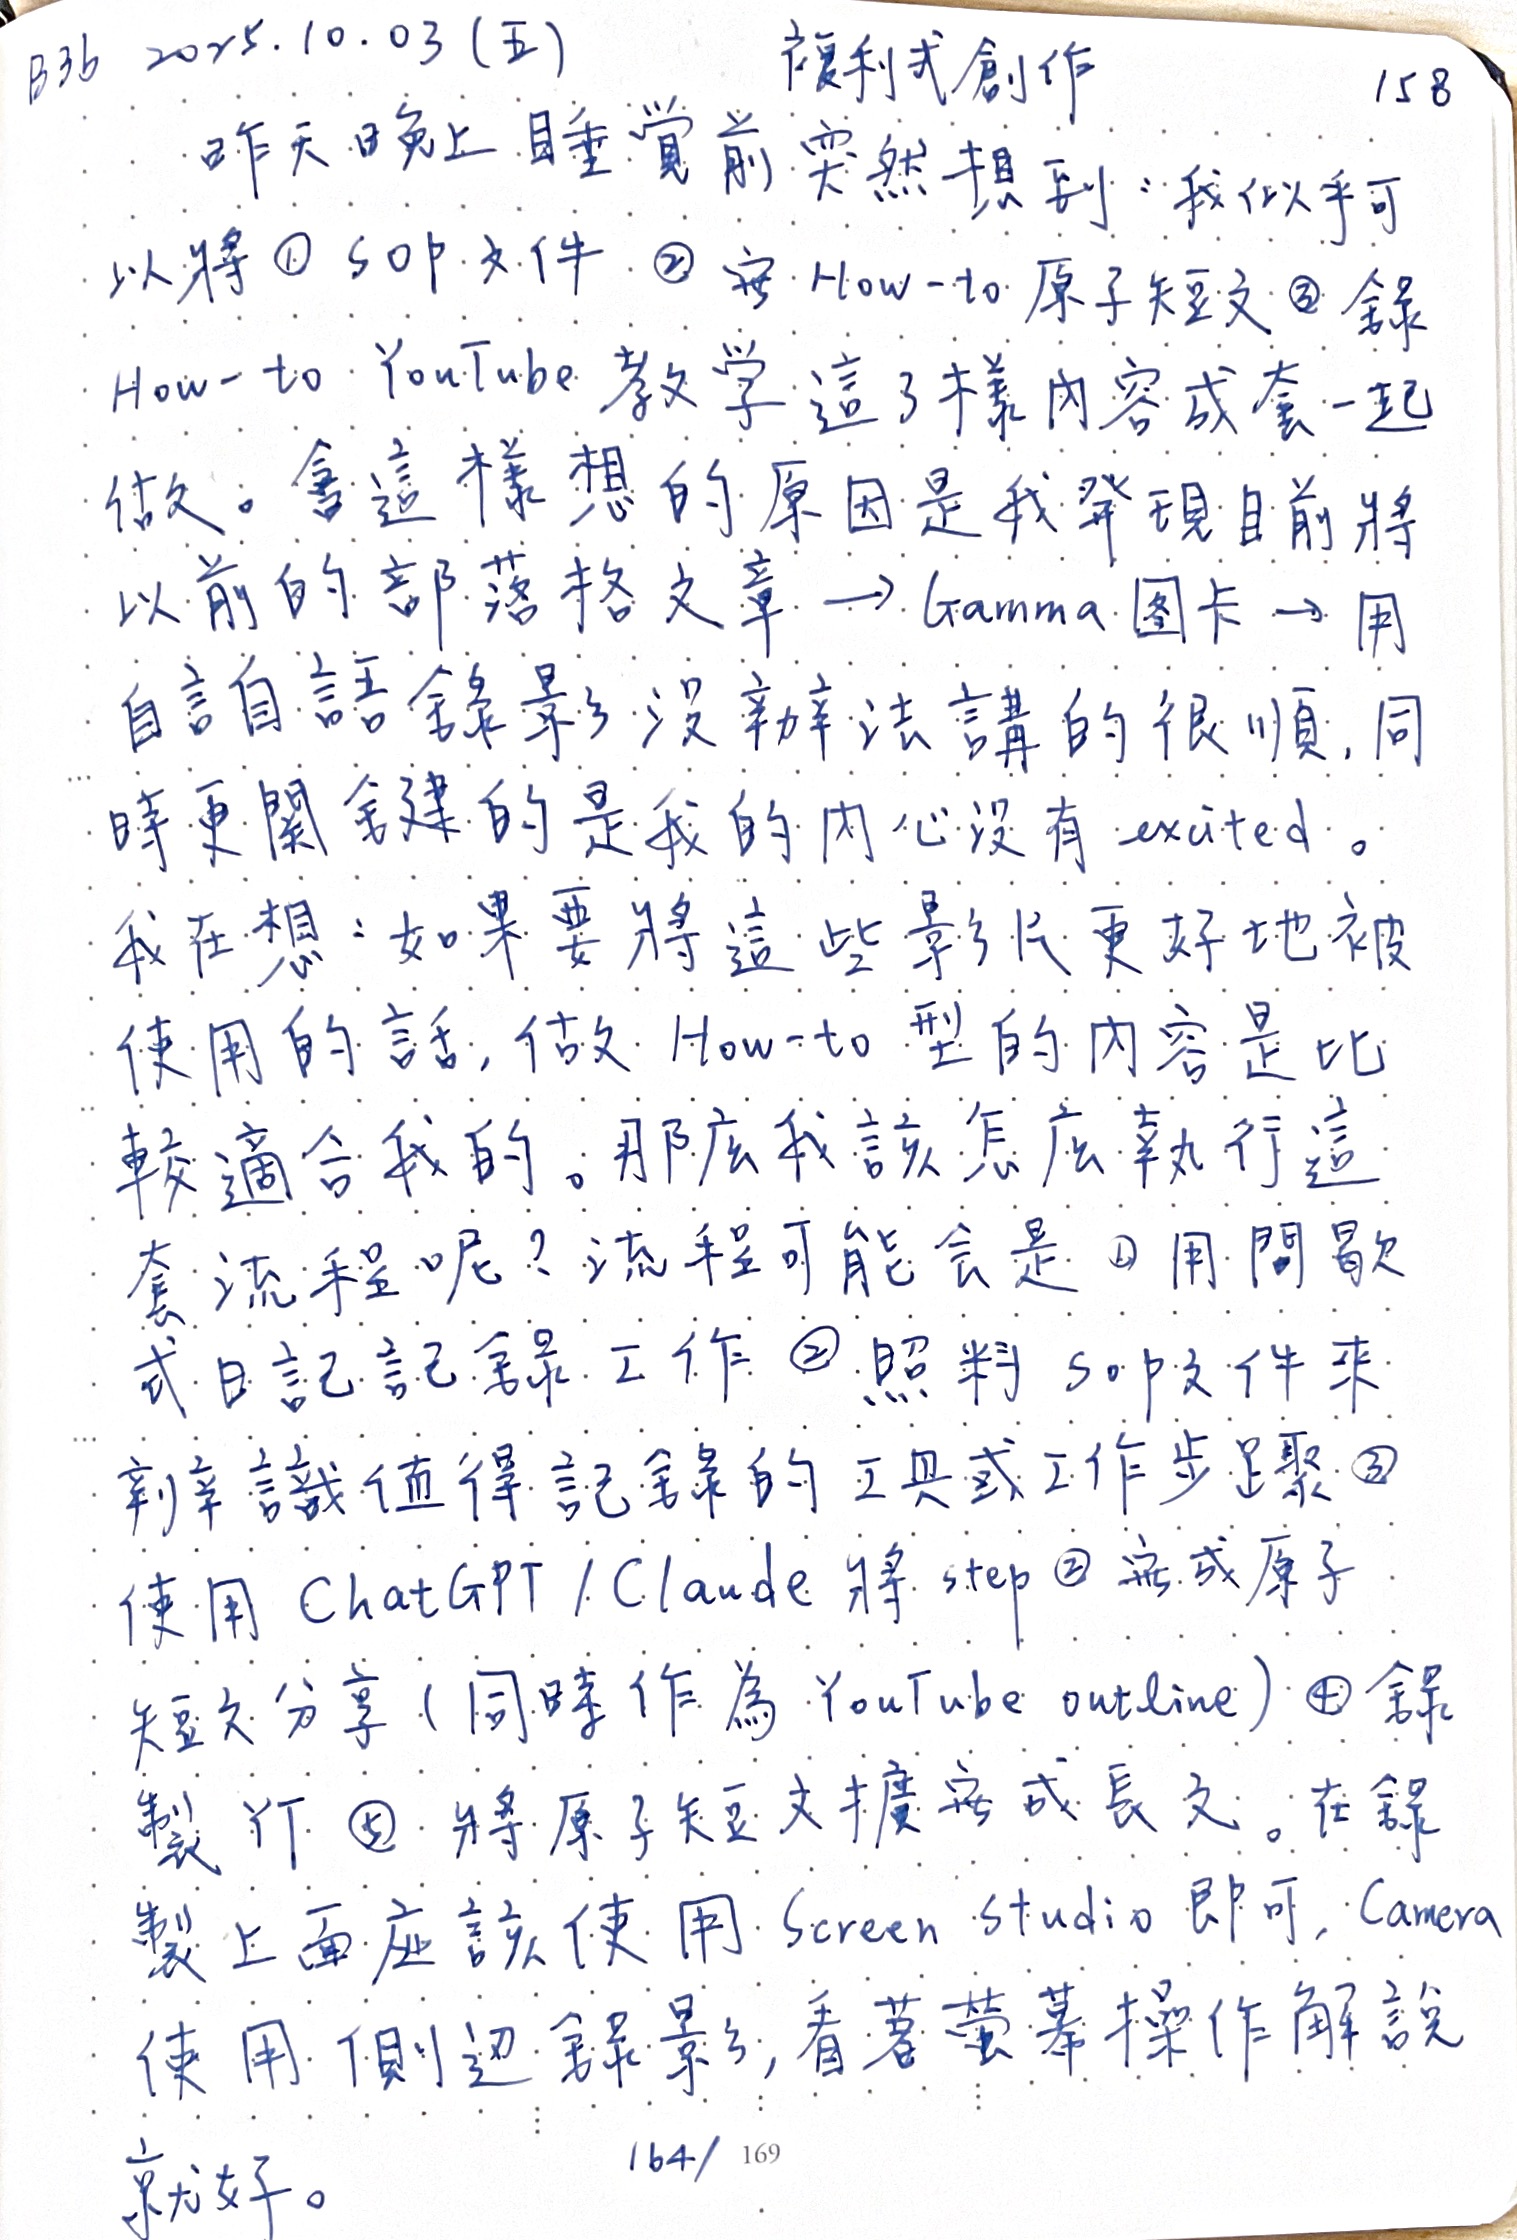 B36 2025.10.03(五) 複利式創作 158
昨天晚上睡覺前突然想到：我似乎可
以將①SOP文件 ②寫How-to原子短文③錄
How-to YouTube教学這3樣內容成套一起
做。會這樣想的原因是我發現目前將
以前的部落格文章→Gamma圖卡→用
自言自語錄影沒辦法講的很順，同
時更關鍵的是我的內心沒有excited。
我在想：如果要將這些影片更好地被
使用的話，做How-to型的內容是比
較適合我的。那広我該怎広執行這
套流程呢？流程可能会是①用間歇
式日記記錄工作②照料SOP文件來
辨識值得記錄的工具或工作步驟③
使用ChatGPT/Claude將step②寫成原子
短文分享(同時作為YouTube outline)④錄
製YT⑤將原子短文擴寫成長文。在錄
製上面应該使用Screen studio即可，Camera
使用側边錄影，看著螢幕操作解說
就好。
164/ 169